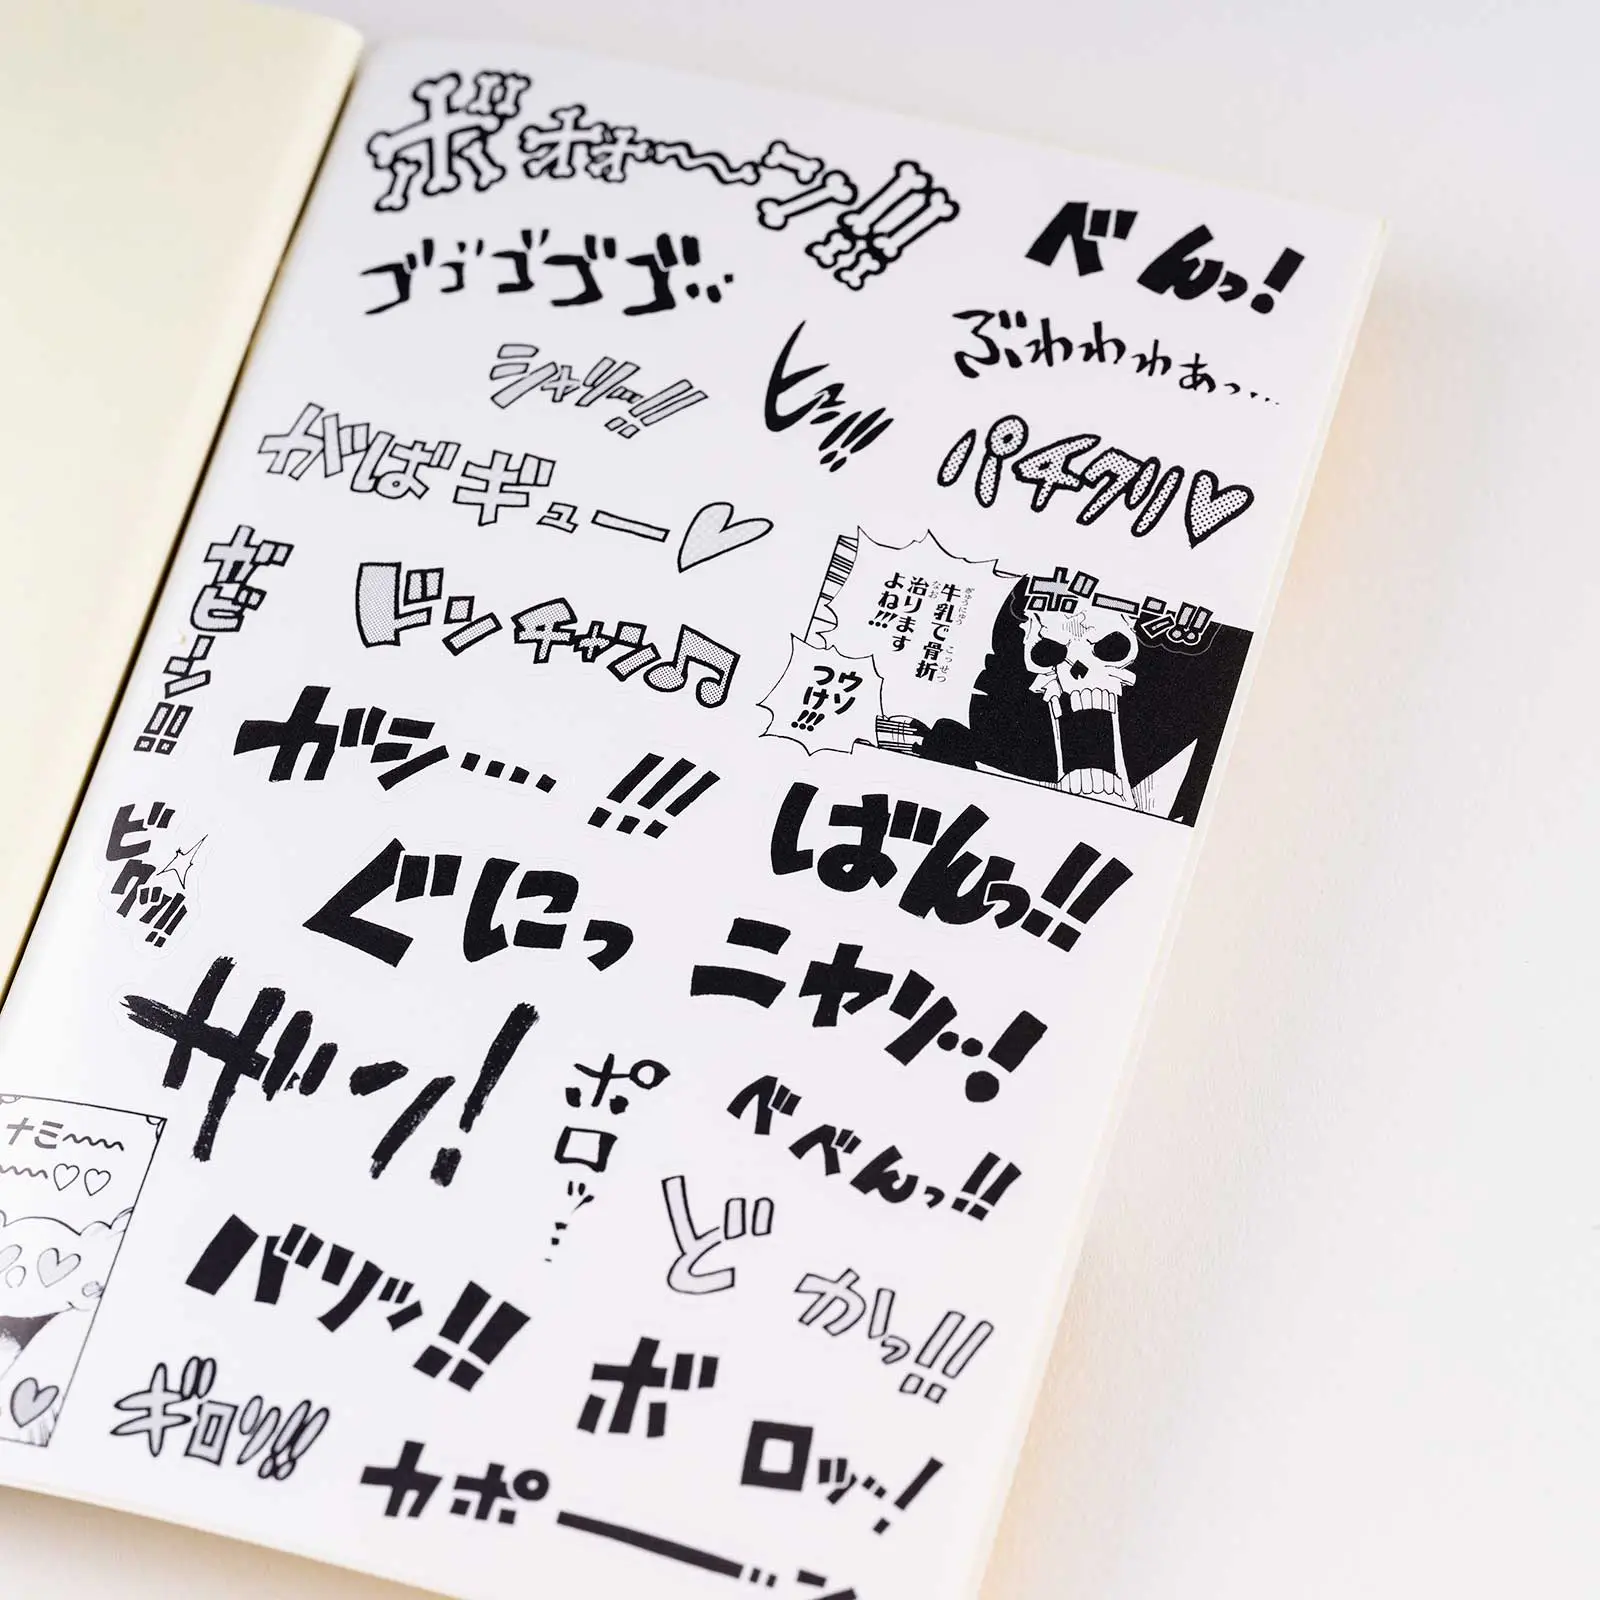 ボォォ〜ン!!
べんっ!
ゴゴゴゴゴ…
ぶわわわぁっ…
シャリッ…!!
ヒュン!!!
パチクリ♡
ギュー♡
ギビーン!!
ドンチャン♫
牛乳で骨折
ぎゅうにゅう
こっせつ
治ります
なお
よね!!!
ウソ
つけ!!!
ガーン!!
ガシ…!!!
ばんっ!!
ビクッ!!
ぐにっ
ニヤリ…!
ザン!
ポロッ…
べべんっ!!
ナミ〜〜
〜〜♡♡
どかっ!!
バリッ!!
ボロッ…!
ギロリ!!
カポーーン